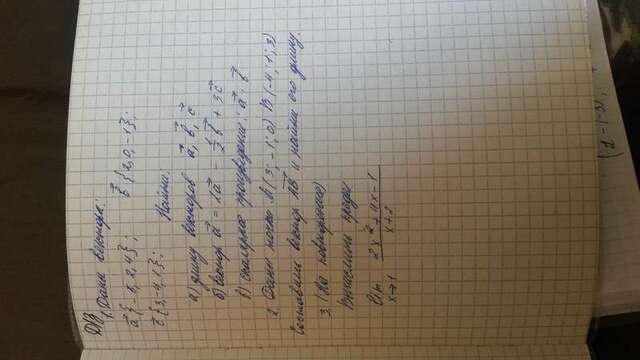 Д/З
1. Даны вектора:
b⃗ {2, 0, -1};
c⃗ {3, -4, 1};
Найти:
а) длину векторов a⃗, b⃗, c⃗
б) вектор d⃗ = 2a⃗ - 1/2 b⃗ + 3c⃗
в) скалярное произведение: a⃗ · b⃗
2. Даны точки A(3; -1; 0) B(-4; 1; 3)
Составить вектор AB и найти его длину.
3. (На повторение)
Вычислить предел
lim x→1 (2x² + 4x - 1)/(x+2)